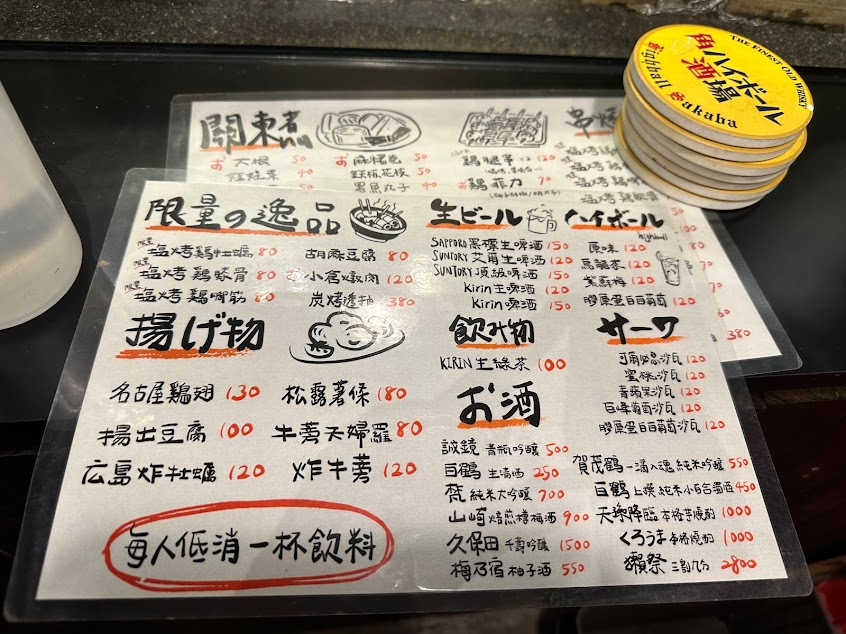 THE FINEST OLD WHISKY
角ハイボール酒場
Highball Sakaba
關東煮
大根 50
娃娃菜 40
麻糬包 50
墨魚丸子 40
雞腿串 120
雞菲力 70
限量の逸品
限量 塩烤鶏牡蠣 80
限量 塩烤鶏膝骨 80
限量 塩烤鶏腳筋 80
胡麻豆腐 80
小倉燉肉 120
炭烤透抽 380
揚げ物
名古屋鶏翅 130
松露薯條 180
揚出豆腐 100
牛蒡天婦羅 80
広島炸牡蠣 120
炸牛蒡 120
每人低消一杯飲料
生ビール
SAPPORO黑標生啤酒 150
SUNTORY艾爾生啤酒 150
SUNTORY頂級啤酒 150
Kirin生啤酒 120
Kirin啤酒 150
ハイボール
highball
原味 120
烏龍茶 120
紫蘇梅 120
膠原蛋白白葡萄 120
飲み物
KIRIN生綠茶 100
サーワ
可爾必思沙瓦 120
蜜桃沙瓦 120
青蘋果沙瓦 120
巨峰葡萄沙瓦 120
膠原蛋白白葡萄沙瓦 120
お酒
誠鏡 青瓶吟釀 500
白鶴 生清酒 250
梵 純米大吟釀 700
山崎 焙煎樽梅酒 900
久保田 千壽吟釀 1500
梅乃宿 柚子酒 550
賀茂鶴 一滴入魂 純米吟釀 550
白鶴 上撰 純米小白合濁酒 450
天孫降臨 本格芋燒酌 1000
くろうま 本格燒酌 1000
獺祭 三割九分 2800
380